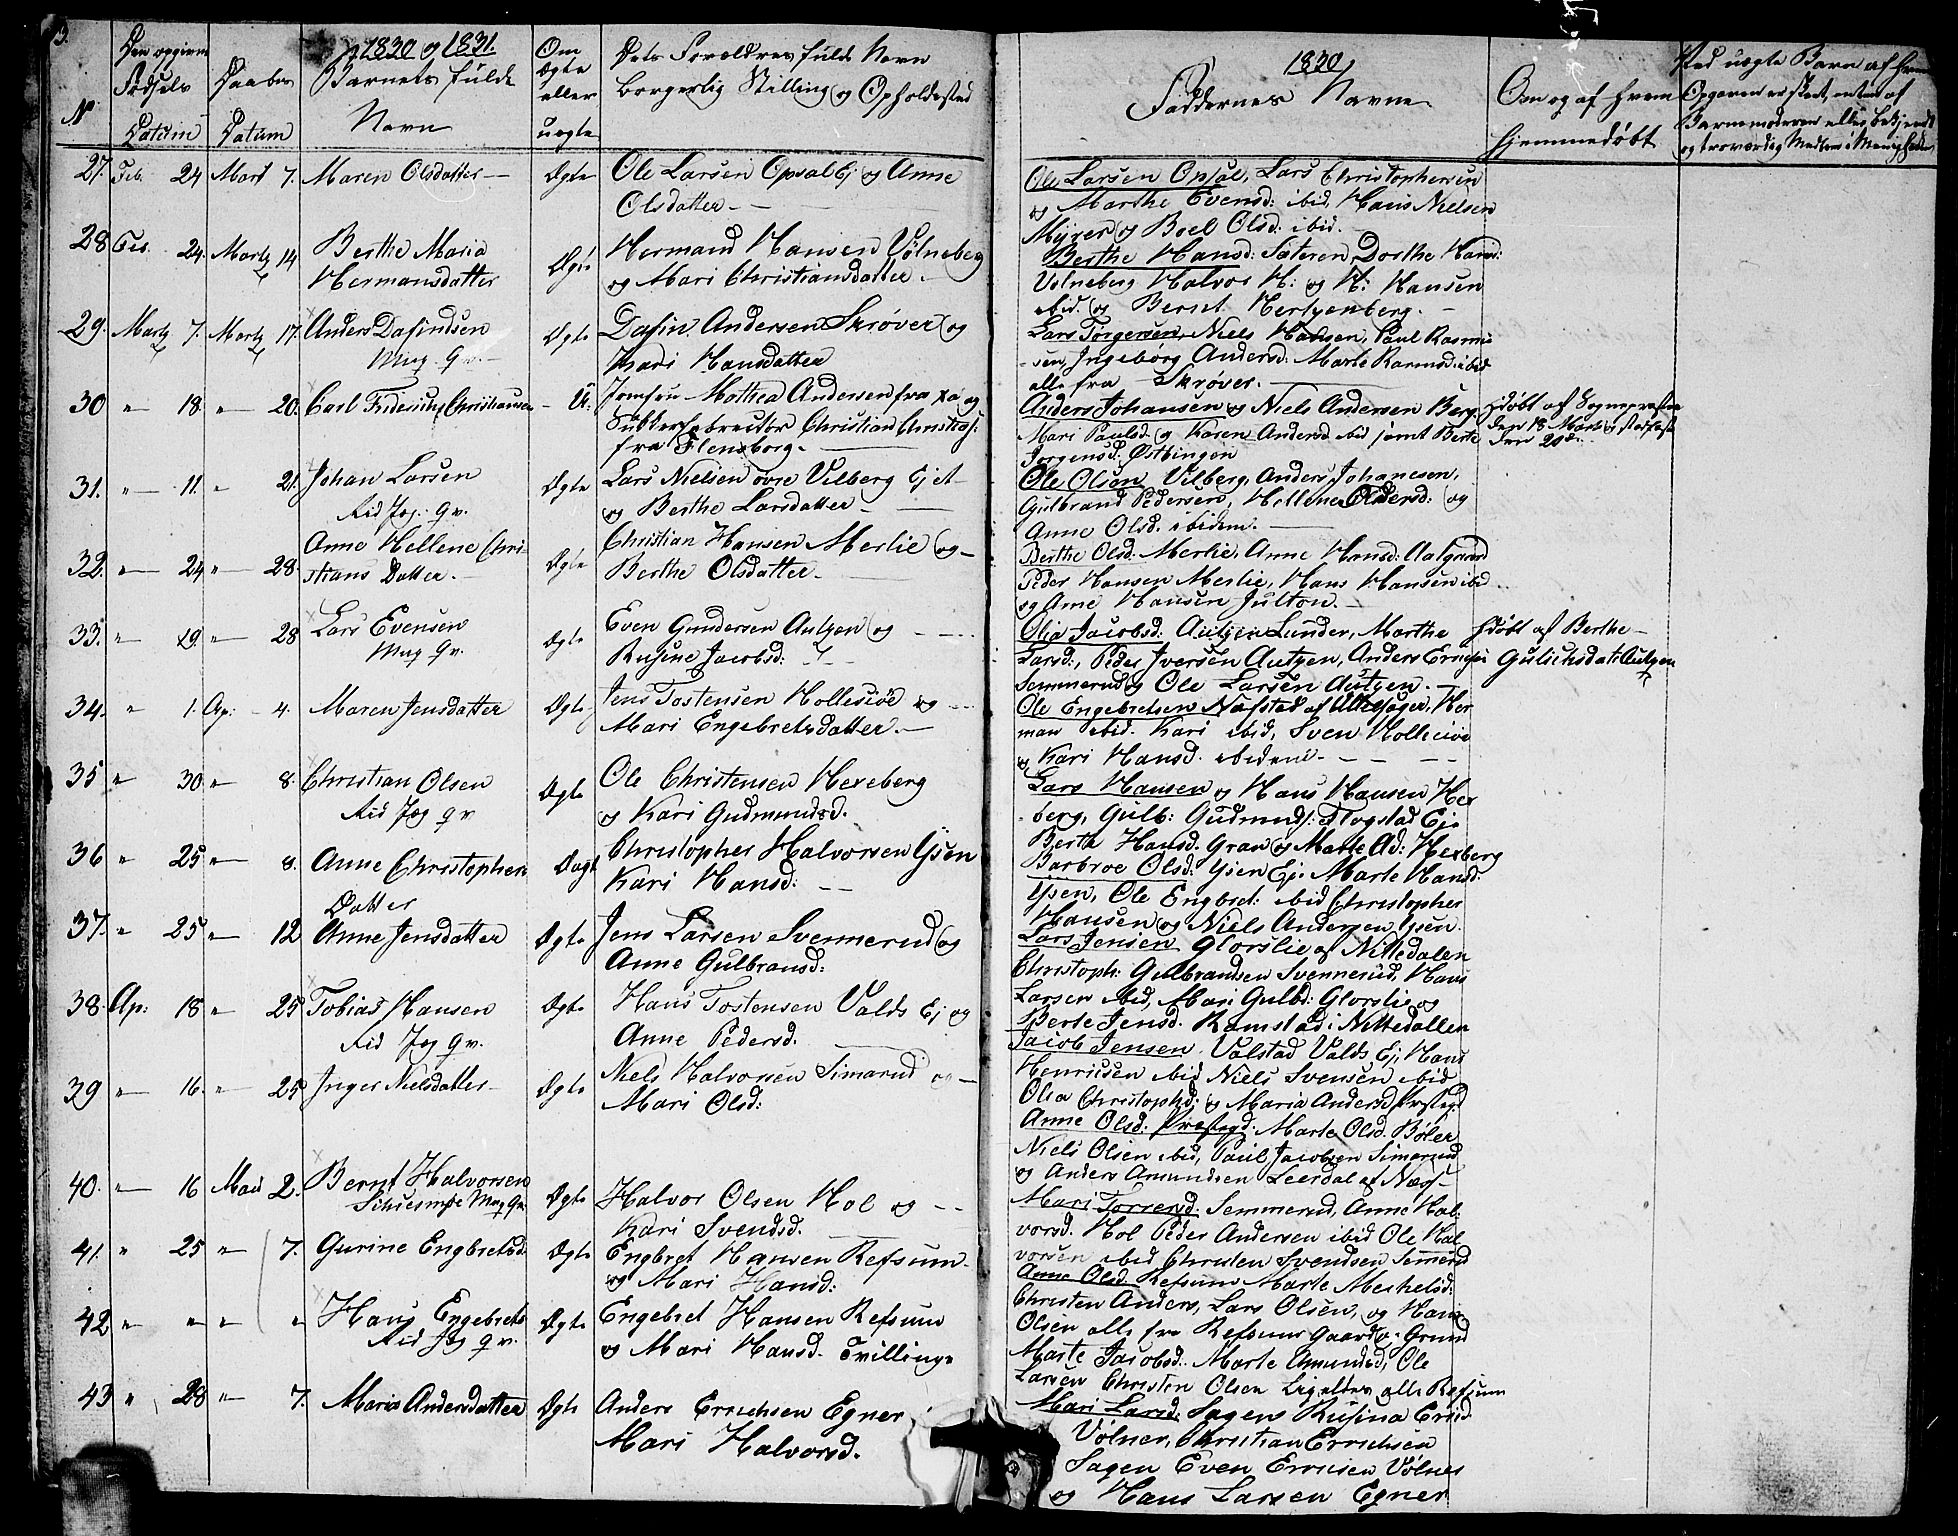 3.
No
Den opgivne Fødsels Datum
Daabs Datum
1830 og 1831.
Barnets fulde Navn
Om ægte eller uægte
Dets Forældres fulde Navn
borgerlig Stilling og Opholdssted
1830
Faddernes Navne
Om og af hvem hjemmedøbt
Ved uægte Barn af hvem
Opgaven er skeet, enten af
Barnemoderen eller
og troværdig Medlem i Menigheden
27. Feb. 24 Marts 7. Maren Olsdatter Ægte Ole Larsen Opsal Ej og Anne
Olsdatter
Ole Larsen Opsal, Lars Christophersen
og Marthe Evensd: ibid, Hans Nielsen
Myrer og Boel Olsd: ibid.
28 Feb. 24. Marts 14 Berthe Maria
Hermansdatter
Ægte Hermand Hansen Vølneberg
og Mari Christiansdatter
Berthe Hansd: Sæteren, Dorthe Hansd:
Volneberg Halvor H: og H: Hansen
ibid. og Bernt Hertzenberg.
29. Marts 7. Marts 17. Anders Dafindsen
Mag. Qv.
Ægte Dafin Andersen Skrøver og
Kari Hansdatter
Lars Torgersen, Niels Hansen, Paul Rasmu-
sen, Ingeborg Andersd: Marte Rasmusd: ibid
alle fra Skrøver.
30 " 18. " 20. Carl Friderich Christiansen U. Jomfru Mathea Andersen fra og
Christian
fra Flensborg.
Anders Johansen og Niels Andersen Berg.
Mari Paulsd. og Karen Andersd. ibid samt Berte
Jørgensd. Østbingen
Hdøbt af Sognepræsten
den 18 Marts
den 20de
31. " 11. " 21. Johan Larsen
Rid Jæg: Qv.
Ægte Lars Nielsen øvre Vilberg Ej et
og Berthe Larsdatter
Ole Olsen Vilberg, Anders Johanesen,
Gulbrand Pedersen, Hellene Olsd: og
Anne Olsd. ibidem.
32. " 24 " 28. Anne Hellene Chri-
stians Datter.
Ægte Christian Hansen Merlie og
Berthe Olsdatter
Berthe Olsd: Merlie, Anne Hansd: Aalgaard
Peder Hansen Merlie, Hans Hansen ibid
og Arne Hansen Julton.
33. " 19. " 28 Lars Evensen
Mag Qv.
Ægte Even Gundersen Autzen og
Rusine Jacobsd:
Olia Jacobsd: Autzen Lunder, Marthe
Larsd:, Peder Iversen Autzen, Anders
Semmerud og Ole Larsen Autzen.
Hdøbt af Berthe
Gulichsdat: Autzen
34. " 1. Ap: 4. Maren Jensdatter Ægte Jens Tostensen Hollesiøe og
Mari Engebretsdatter.
Ole Engebretsen Nafstad af Ullensager, Her
man ibid. Kari ibid, Sven Hollesiøe
og Kari Hansd. ibidem.
35 " 30 " 8. Christian Olsen
Rid Jæg Qv
Ægte Ole Christensen Hexeberg
og Kari Gudmundsd.
Lars Hansen og Hans Hansen Hex
berg, Gulb: Gudmunds: Flogstad Ej:
Berth Hansd. Gran og Marte Ad: Hexberg
36 " 25 " 8. Anne Christophers
Datter
Ægte Christopher Halvorsen Ysen
Kari Hansd:
Barbroe Olsd: Ysen Ej: Marte Hansd:
Ysen, Ole Engbret: ibid Christopher
Hansen og Niels Andersen Ysen.
37. " 25 " 12 Anne Jensdatter Ægte Jens Larsen Svennerud og
Anne Gulbransd:
Lars Jensen Glorslie af Nittedalen
Christoph: Gulbrandsen Svennerud, Hans
Larsen ibid, Mari Gulbd: Glorslie og
Berte Jensd. Ramstad i Nittedallen
38. Ap: 18 " 25 Tobias Hansen
Rid Jæg Qv.
Ægte Hans Tostensen Valds Ej og
Anne Pedersd.
Jacob Jensen Valstad Valds Ej Hans
Henricsen ibid Niels Svensen ibid
Olia Christophd: og Maria Andersd Præstegd
39 " 16. " 25 Inger Nielsdatter Ægte Niels Halvorsen Simarud og
Mari Olsd:
Anne Olsd: Præstegd: Marte Olsd. Bøler
Niels Olsen ibid, Paul Jacobsen Simerud
og Anders Amundsen Leerdal af Næss
40. " 16 Mai 2. Bernt Halvorsen
Mag Qv.
Ægte Halvor Olsen Hol og
Kari Svendsd.
Mari Torrersd: Semmerud, Anne Hal:
vorsd. Hol Peder Andersen ibid Ole Hal
vorsen ibid Christen Svendsen Semerud
41. " 25 " 7. Gurine Engbretsd: Ægte Engbret Hansen Refsum
og Mari Hansd:
Anne Olsd Refsum Marte Michelsd:
Christen Anders, Lars Olsen, og Hans
Olsen alle fra Refsum Gaard og Grund
42 " " " " Hans Engebrets
Rid Jæg Qv.
Ægte Engebret Hansen Refsum
og Mari Hansd. Tvillinge
Marte Jacobsd:. Marte Amundsd, Ole
Larsen Christen Olsen Ligeltes alle Refsum
43 " 28 " 7. Maria Andersdatter Ægte Anders Errichsen Egner
Mari Halvorsd.
Mari Larsd: Sagens Rusina Ericsd
Vølner, Christian Errichsen
Sagen Even Erricsen Vølner
og Hans Larsen Egner